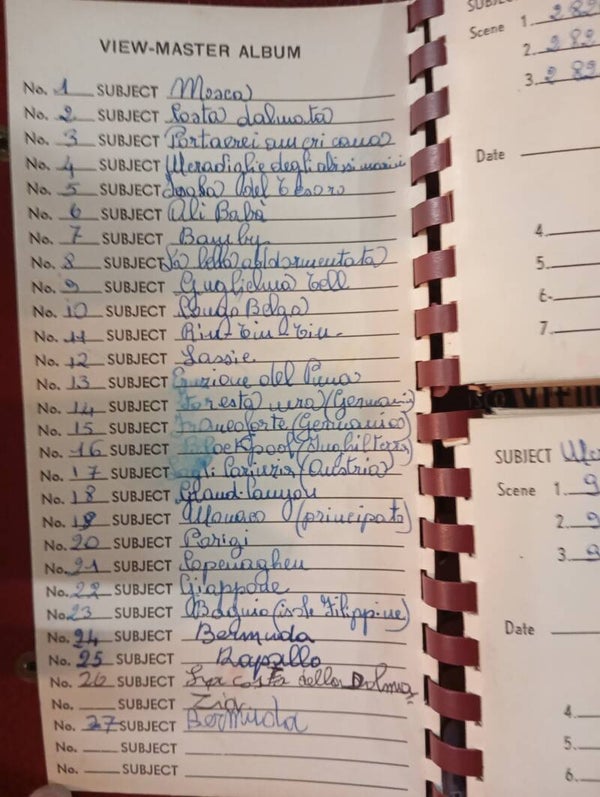 VIEW-MASTER ALBUM
No. 1 SUBJECT Mosca
No. 2 SUBJECT Costa dalmata
No. 3 SUBJECT Portaerei americana
No. 4 SUBJECT Meraviglie degli abissi marini
No. 5 SUBJECT del Tesoro
No. 6 SUBJECT Ali Babà
No. 7 SUBJECT Bamby
No. 8 SUBJECT La bella addormentata
No. 9 SUBJECT Guglielmo Tell
No. 10 SUBJECT Congo Belga
No. 11 SUBJECT Rin-Tin-Tin
No. 12 SUBJECT Lassie
No. 13 SUBJECT Eruzione del
No. 14 SUBJECT Foresta nera (Germani
No. 15 SUBJECT Francoforte (Germania)
No. 16 SUBJECT Blackpool (Inghilterra)
No. 17 SUBJECT (Austria)
No. 18 SUBJECT Grand-Canyon
No. 19 SUBJECT Monaco (principato)
No. 20 SUBJECT Parigi
No. 21 SUBJECT Copenaghen
No. 22 SUBJECT Giappone
No. 23 SUBJECT Baguio (isole Filippine)
No. 24 SUBJECT Bermuda
No. 25 SUBJECT Rapallo
No. 26 SUBJECT costa della Dalma
No. SUBJECT Zia
No. 27 SUBJECT Bermuda
No. SUBJECT
No. SUBJECT
SUBJEC
Scene 1. 282
2. 282
3. 282
Date
4.
5.
6.
7.
SUBJECT Me
Scene 1. 9
2. 9
3. 9
Date
4.
5.
6.